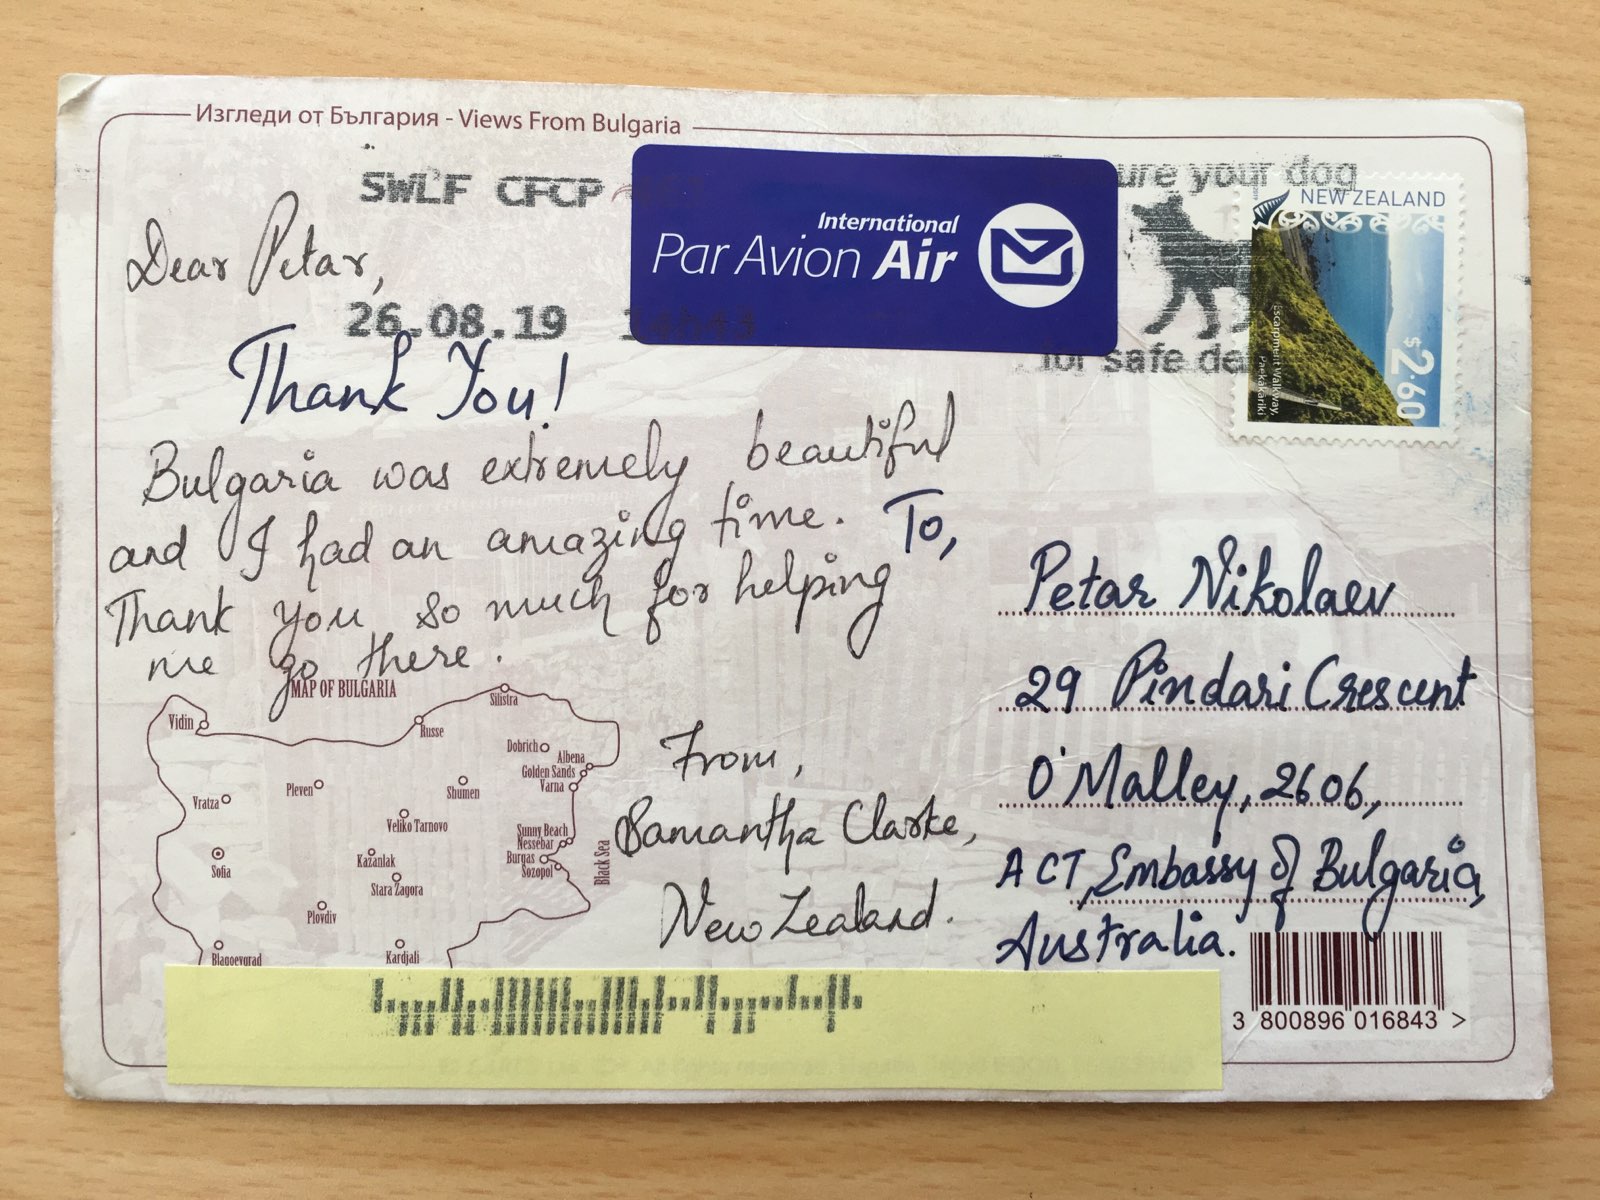 Изгледи от България - Views From Bulgaria
SWLF CFCP
26.08.19 14h43
International
Par Avion Air
ure your dog
for safe de
NEW ZEALAND
Escarpment Walkway,
Paekakariki
$2.60
Dear Petar,
Thank You!
Bulgaria was extremely beautiful
and I had an amazing time.
Thank you so much for helping
me go there.
From,
Samantha Clarke,
New Zealand.
To,
Petar Nikolaev
29 Pindari Crescent
O'Malley, 2606,
ACT, Embassy of Bulgaria,
Australia.
MAP OF BULGARIA
Vidin
Silistra
Russe
Dobrich
Albena
Golden Sands
Varna
Pleven
Shumen
Vratza
Veliko Tarnovo
Sunny Beach
Nessebar
Burgas
Sozopol
Black Sea
Kazanlak
Sofia
Stara Zagora
Plovdiv
Blagoevgrad
Kardjali
3 800896 016843 >